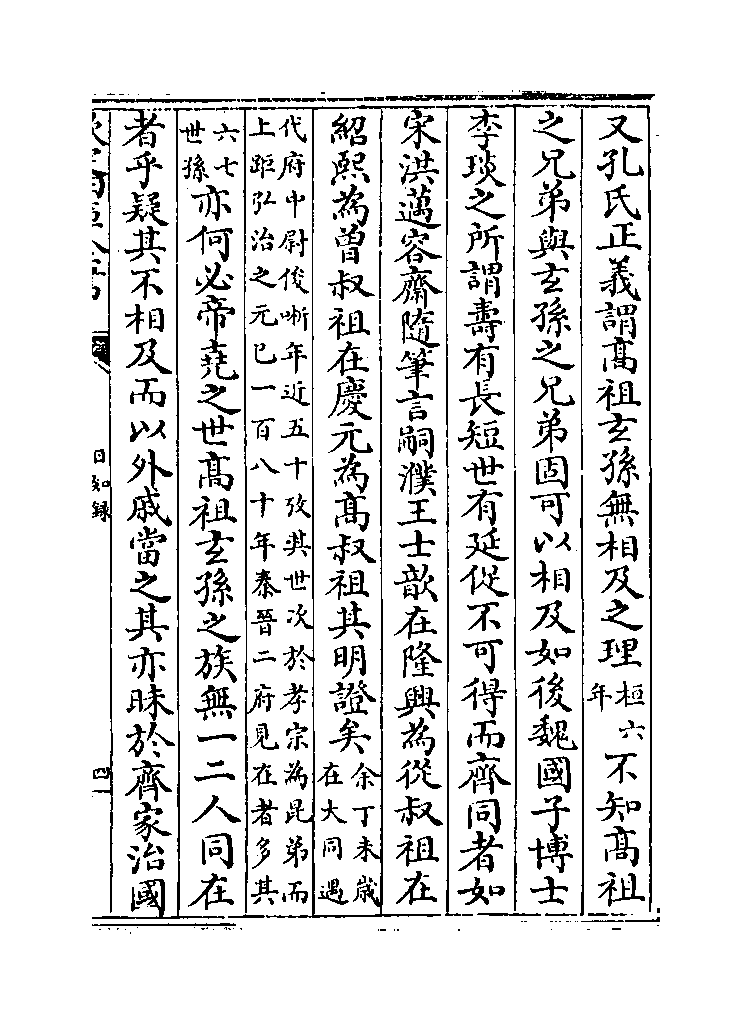 又孔氏正義謂髙祖𤣥孫無相及之理桓六年不知髙祖
之兄弟與𤣥孫之兄弟固可以相及如後魏國子博士
李琰之所謂壽有長短世有延促不可得而齊同者如
宋洪邁容齋隨筆言嗣濮王士歆在隆興為從叔祖在
紹熙為曽叔祖在慶元為髙叔祖其明證矣余丁未歳在大同遇
代府中尉俊晣年近五十攷其世次於孝宗為昆弟而上距弘治之元已一百八十年秦晉二府見在者多其
六七世孫亦何必帝堯之世髙祖𤣥孫之族無一二人同在
者乎疑其不相及而以外戚當之其亦昧於齊家治國
欽定四庫全書
日知録
四一